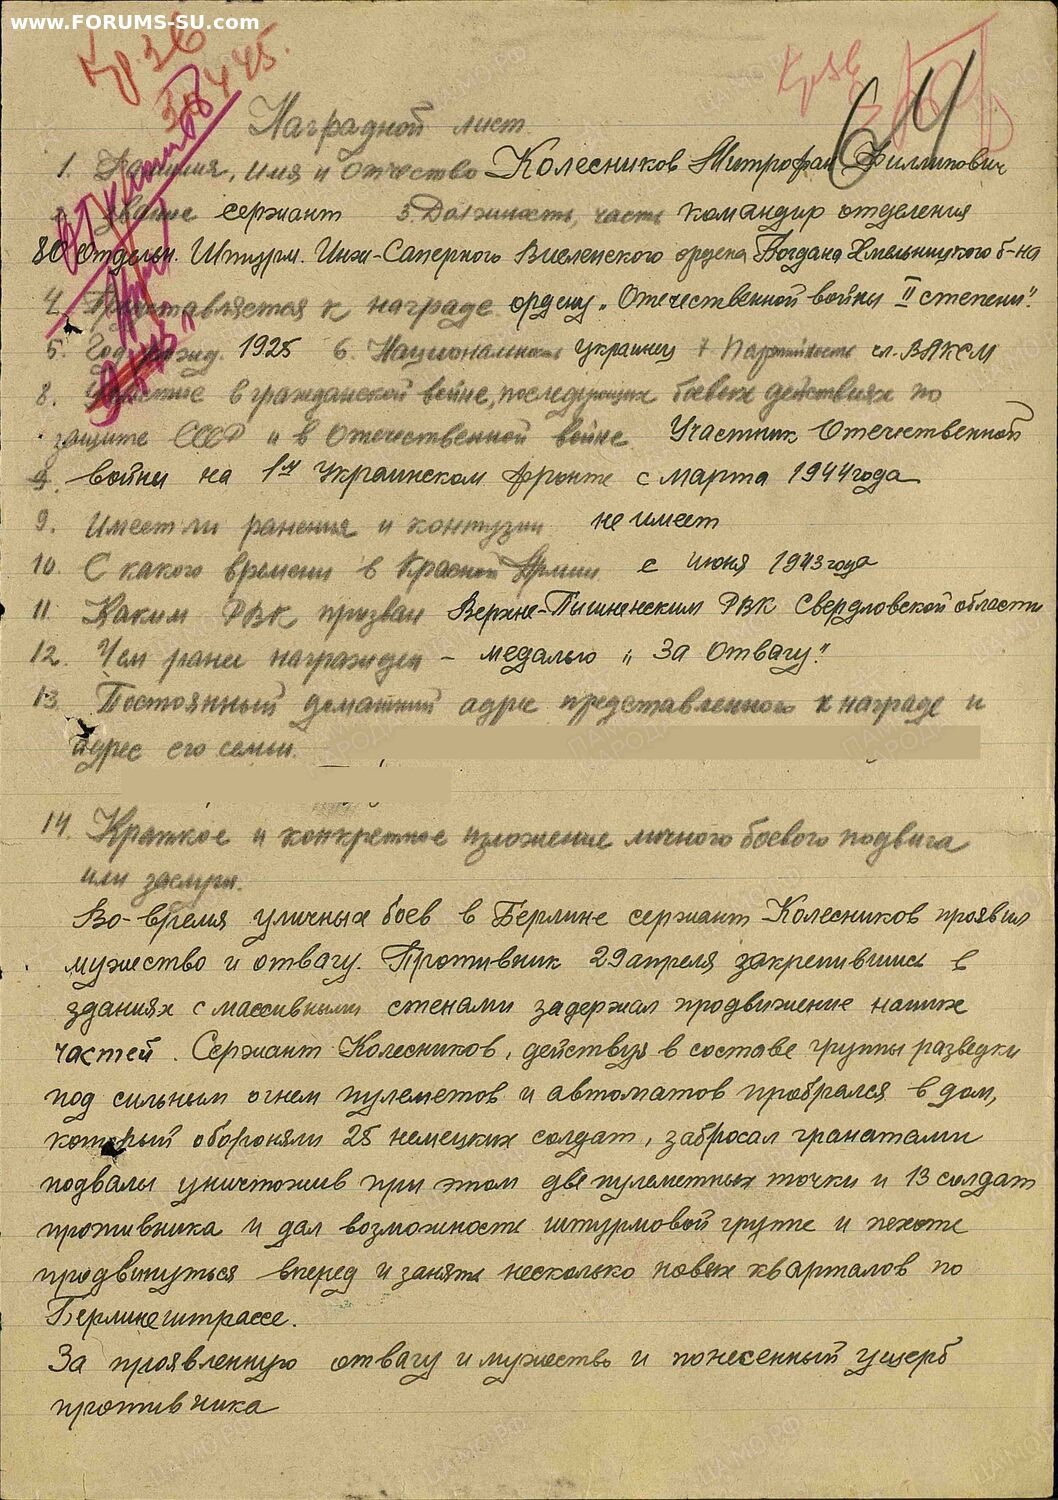 www.FORUMS-SU.com
Наградной лист
1. Фамилия, имя и отчество Колесников Митрофан Филлипович
2. Звание сержант 3. Должность, часть командир отделения
80 Отдельн. Штурм. Инж-Саперного Виленского ордена Богдана Хмельницкого б-на
4. Представляется к награде ордену „Отечественной войны II степени".
5. Год рожд. 1925 6. Национальность украинец 7 Партийность чл. ВЛКСМ
8. Участие в гражданской войне, последующих боевых действиях по
защите СССР и в Отечественной войне Участник Отечественной
войны на 1м Украинском фронте с марта 1944 года
9. Имеет ли ранения и контузии не имеет
10. С какого времени в Красной Армии с июня 1943 года
11 Каким РВК призван Верхне-Пышменским РВК Свердловской области
12. Чем ранее награжден - медалью „За Отвагу."
13 Постоянный домашний адрес представленного к награде и
адрес его семьи.
14. Краткое и конкретное изложение личного боевого подвига
или заслуги.
Во-время уличных боев в Берлине сержант Колесников проявил
мужество и отвагу. Противник 29 апреля закрепившись в
зданиях с массивными стенами задержал продвижение наших
частей. Сержант Колесников, действуя в составе группы разведки
под сильным огнем пулеметов и автоматов пробрался в дом,
который обороняли 25 немецких солдат, забросал гранатами
подвалы уничтожив при этом две пулеметных точки и 13 солдат
противника и дал возможность штурмовой группе и пехоте
продвинуться вперед и занять несколько новых кварталов по
Берлинештрассе.
За проявленную отвагу и мужество и понесенный ущерб
противника